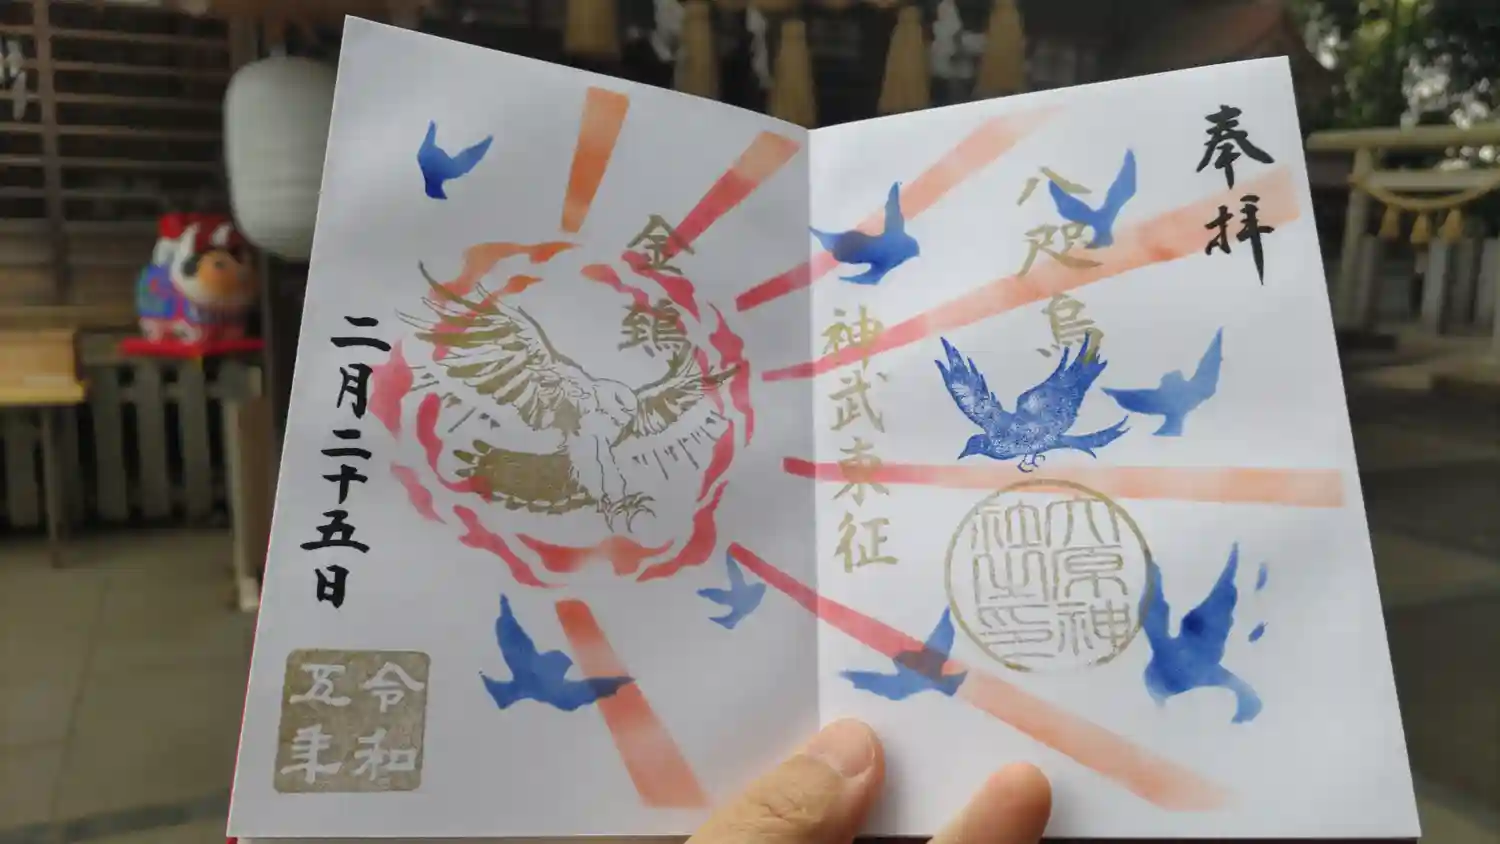 奉拝
八咫烏
神武東征
六原神社之印
金鵄
二月二十五日
令和五年